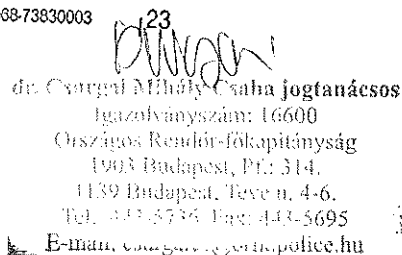 68-73830003
23
dr. Csurgai Mihály Csaba jogtanácsos
Igazolványszám: 16600
Országos Rendőr-főkapitányság
1903 Budapest, Pf.: 314.
1139 Budapest, Teve u. 4-6.
Tel. 443-5735 Fax: 443-5695
E-mail, police.hu